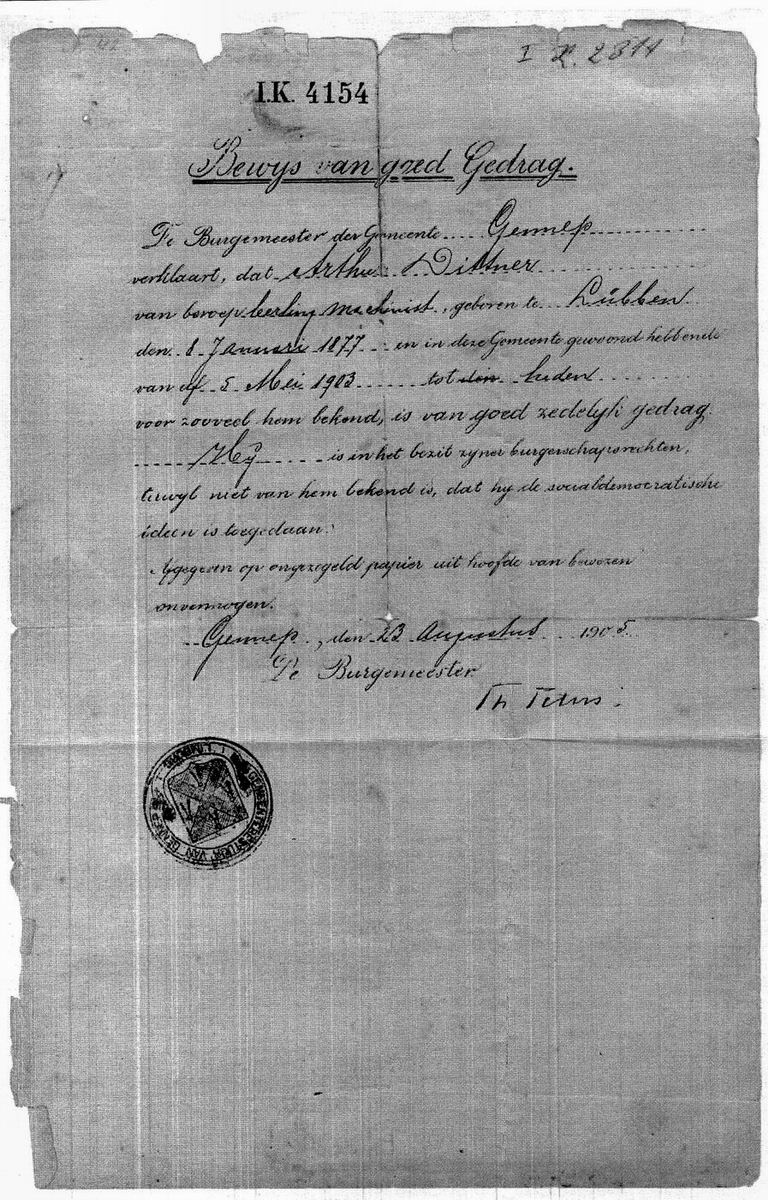 I K. 2811
I.K. 4154
Bewys van goed Gedrag.
De Burgemeester der Gemeente Gennep
verklaart, dat Arthur Dittner
van beroep leerling machinist, geboren te Lübben
den 8 Januari 1877 en in deze Gemeente gewoond hebbende
van af 5 Mei 1903 tot den heden
voor zooveel hem bekend, is van goed zedelyk gedrag.
Hy is in het bezit zyner burgerschapsrechten,
terwyl niet van hem bekend is, dat hy de sociaaldemocratische
ideen is toegedaan.
Afgegeven op ongezegeld papier uit hoofde van bewezen
onvermogen.
Gennep, den 23 Augustus 1905.
De Burgemeester
GEMEENTEBESTUUR VAN GENNEP